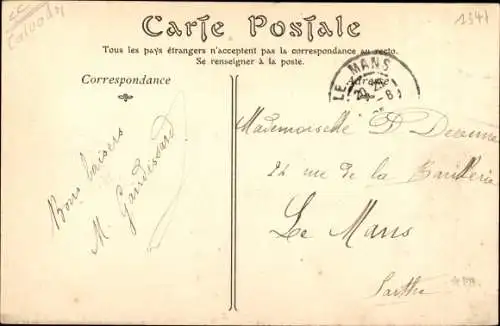 Carte Postale
Tous les pays étrangers n'acceptent pas la correspondance au recto.
Se renseigner à la poste.
Correspondance
Adresse
LE MANS
Bons baisers
M. Gaudissard
Mademoiselle P
24 rue de la Barillerie
Le Mans
Sarthe
1341